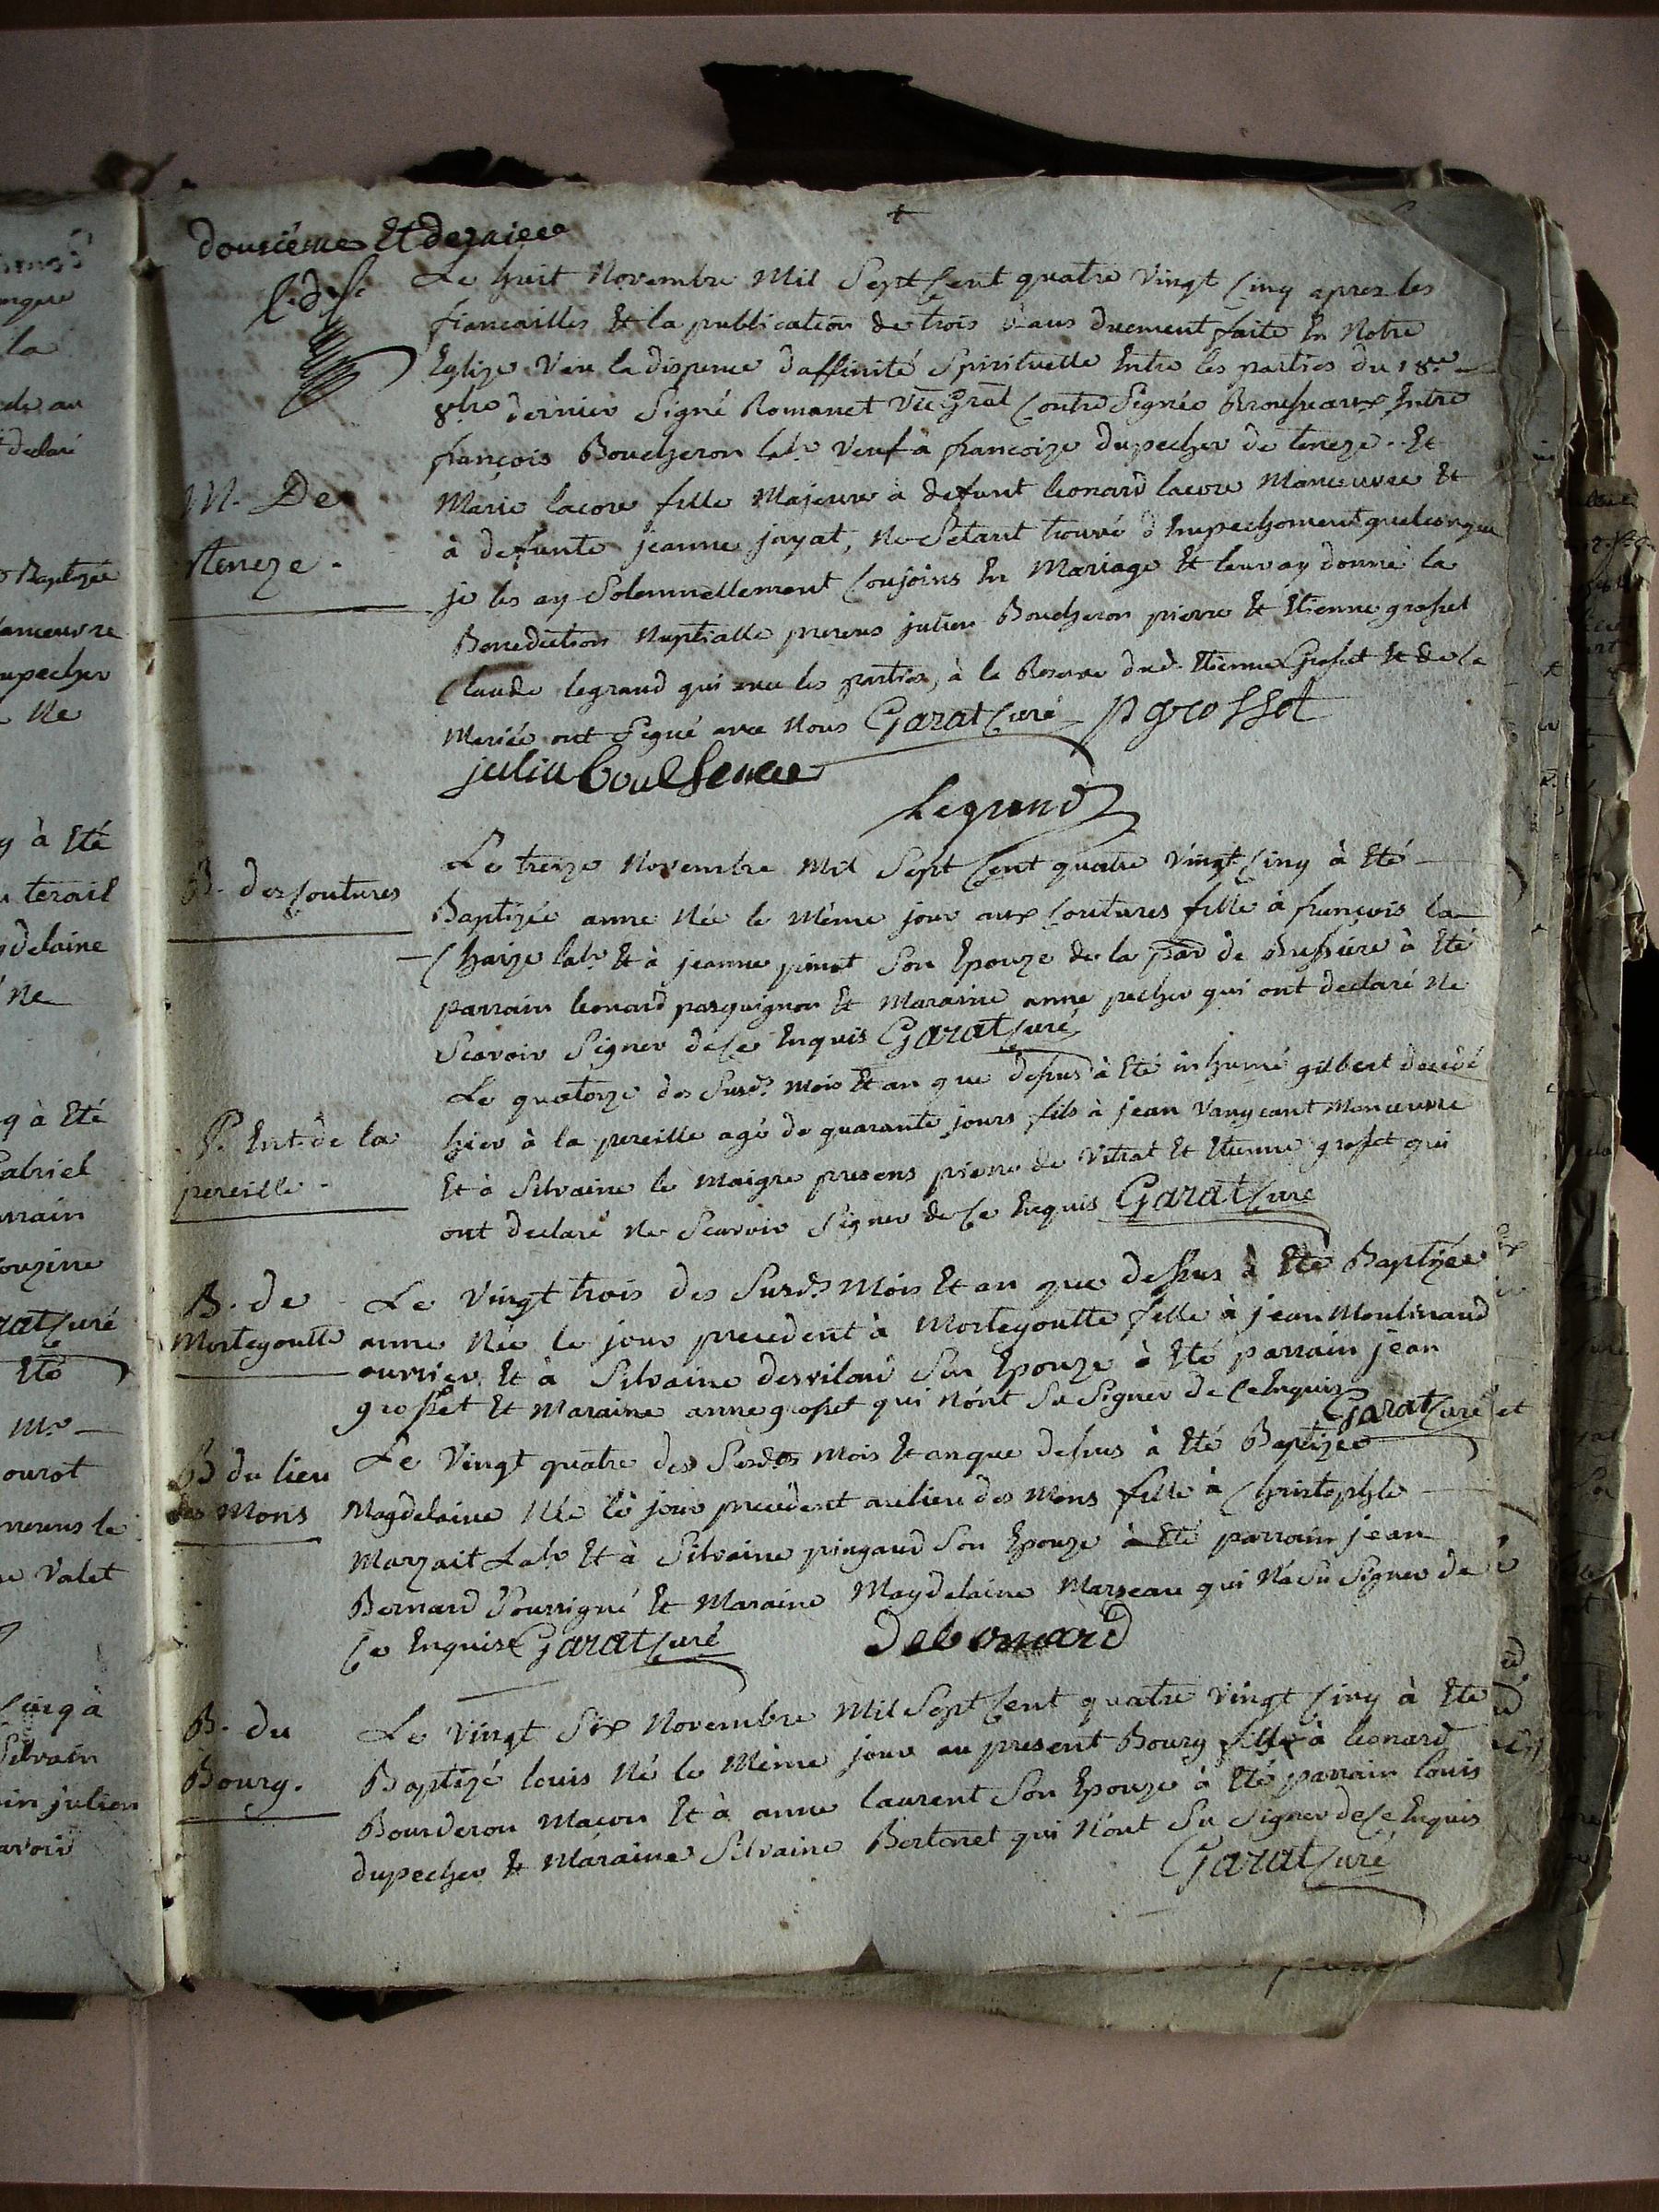 douzième Et dernière
Le huit Novembre Mil Sept Cent quatre Vingt Cinq apres les
fiancailles Et la publication de trois Bans duement faite En Notre
Eglize Veu la dispence daffinité Spirituelle Entre les parties du 18e
8bre dernier Signé Romanet Vic Gral Contre Signée Entre
françois Boucheron labr Veuf à francoize dupecher de teneze. Et
M. De
Marie lacore fille Majeure à defunt leonard lacore Manœuvre Et
teneze.
à defunte jeanne jayat, Ne Setant trouvé d'Empechement quelconque
je les ay Solemnellement Conjoins En Mariage Et leur ay donné la
Benediction Nuptialle presens julien Boucheron pierre Et Etienne grosset
Claude legrand qui avec les parties, à la Reserve dud. Etienne Grosset Et de la
Mariée ont Signé avec Nous Garat Curé p grosset
julien
Legrand
B. des Coutures
Le treize Novembre Mil Sept Cent quatre Vingt Cinq à Eté
Baptizée anne Née le Même jour aux Coutures fille à françois la
Chaize labr Et à jeanne pinot Son Epouze de la par de Bussiere à Eté
parrain leonard pasquignon Et Maraine anne pecher qui ont declaré Ne
Scavoir Signer de Ce Enquis Garat Curé
Le quatorze des Susds mois Et an que dessus à Eté inhumé gilbert decedé
P. Ent. de la
hier à la pereille agé de quarante jours fils à jean Vangeant Manœuvre
pereille.
Et à Silvaine le Maigre presens pierre de Vitrat Et Etienne grosset qui
ont declaré Ne Scavoir Signer de Ce Enquis Garat Curé
B. de
Le Vingt trois des Susds Mois Et an que dessus à Eté Baptizée
Mortegoutte
anne Née le jour precedent à Mortegoutte fille à jean Moulinaud
ouvrier Et à Silvaine Son Epouze à Eté parrain jean
grosset Et Maraine anne grosset qui N'ont Su Signer de Ce Enquis
Garat Curé
B du lieu
Le Vingt quatre des Susdts Mois Et an que dessus à Eté Baptizée
des Mons
Magdelaine Née le jour precedent au lieu des Mons fille à Christophle
Marzait Labr Et à Silvaine pingaud Son Epouze à Eté parrain jean
Bernard Soussigné Et Maraine Magdelaine Marseau qui N'a Su Signer de
Ce Enquise Garat Curé
B. du
Le Vingt Six Novembre Mil Sept Cent quatre Vingt Cinq à Eté
Bourg.
Baptizé louis Né le Même jour au present Bourg fils à leonard
Bourderon Maçon Et à anne laurent Son Epouze à Eté parrain louis
dupecher Et Maraine Silvaine Bertonet qui N'ont Su Signer de Ce Enquis
Garat Curé